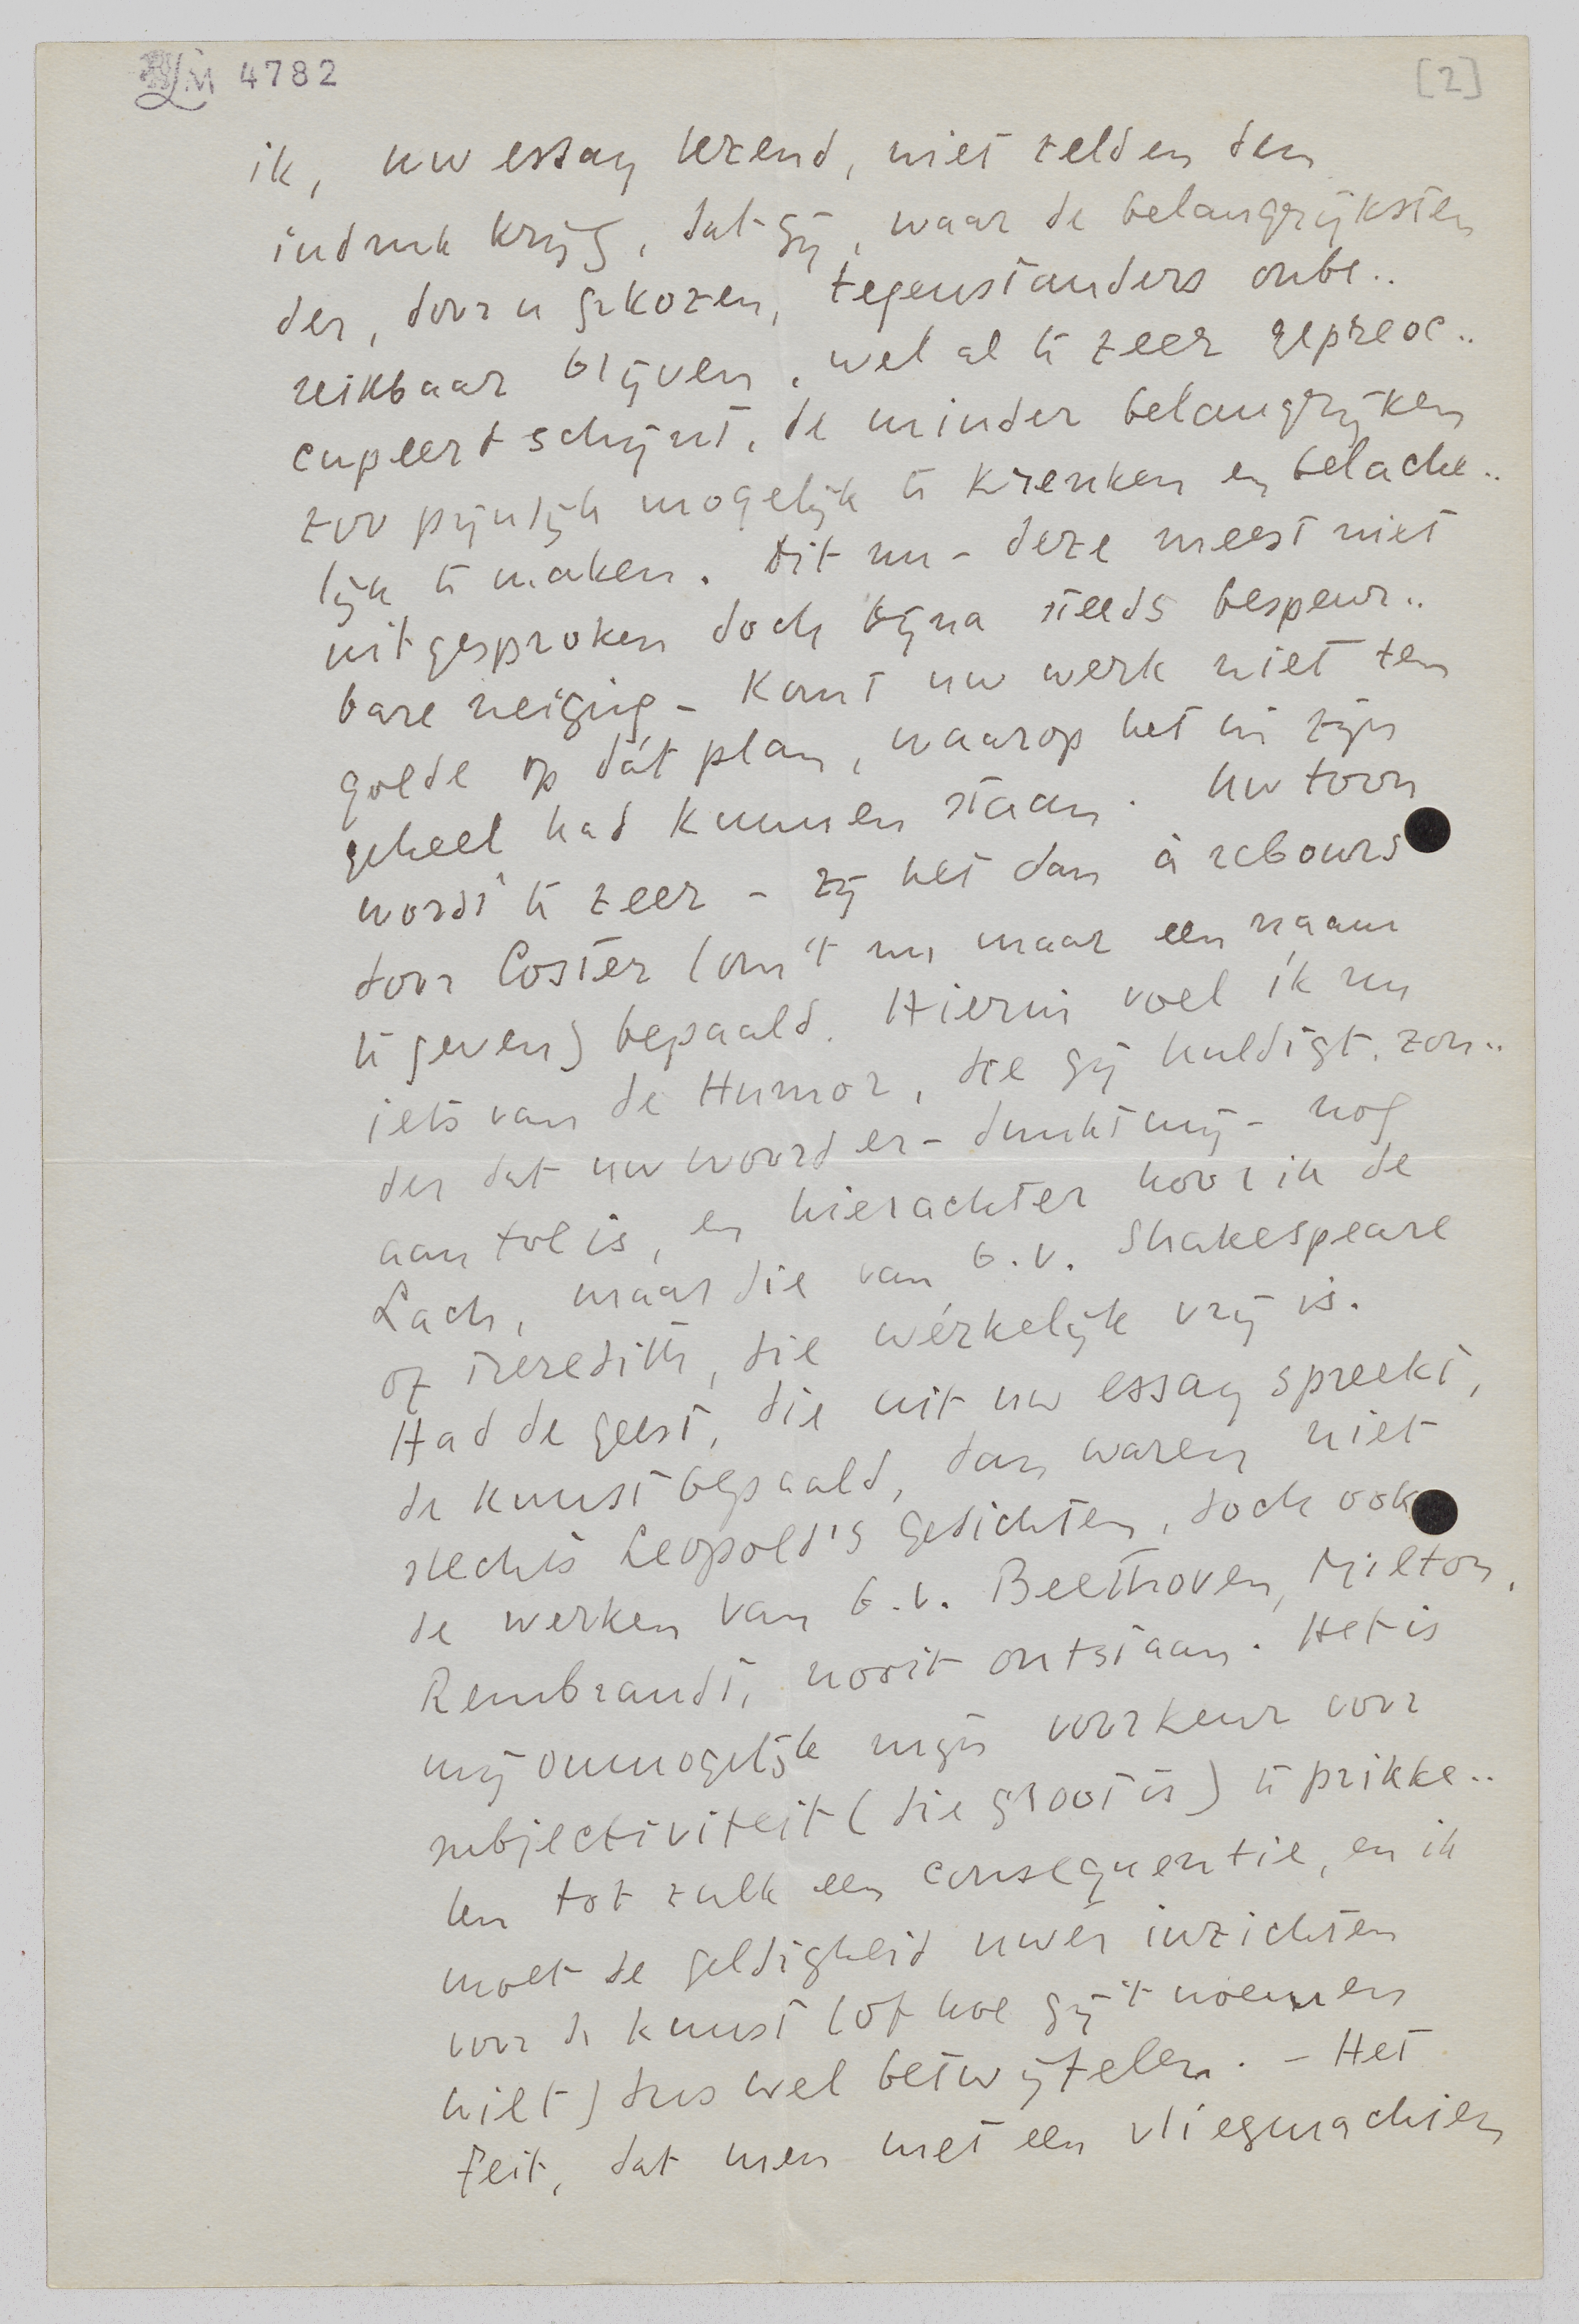 LM 4782
[2]
ik, uw essay lezend, niet zelden den
indruk krijg, dat gij, waar de belangrijksten
der, door u gekozen, tegenstanders onbe..
reikbaar blijven, wel al te zeer gepreoc..
cupeert schijnt, de minder belangrijken
zoo pijnlijk mogelijk te krenken en belache..
lijk te maken. Dit nu - deze meest niet
uitgesproken doch bijna steeds bespeur..
bare neiging - komt uw werk niet ten
goede op dát plan, waarop het in zijn
geheel had kunnen staan. Uw toon
wordt te zeer - zij het dan à rebours
door Coster (om 't nu maar een naam
te geven) bepaald. Hierin voel ik nu
iets van de Humor, die gij huldigt, zon..
der dat uw woord er - dunkt mij - nog
aan toe is, en hierachter hoor ik de
Lach, maar die van b.v. Shakespeare
of Meredith, die wérkelijk vrij is.
Had de geest, die uit uw essay spreekt,
de kunst bepaald, dan waren niet
slechts Leopold's gedichten, doch ook
de werken van b.v. Beethoven, Milton,
Rembrandt, nooit ontstaan. Het is
mij onmogelijk mijn voorkeur voor
subjectiviteit (die groot is) te prikke..
len tot zulk een consequentie, en ik
moet de geldigheid uwer inzichten
voor de kunst (of hoe gij 't noemen
wilt) dus wel betwijfelen. - Het
feit, dat men met een vliegmachien